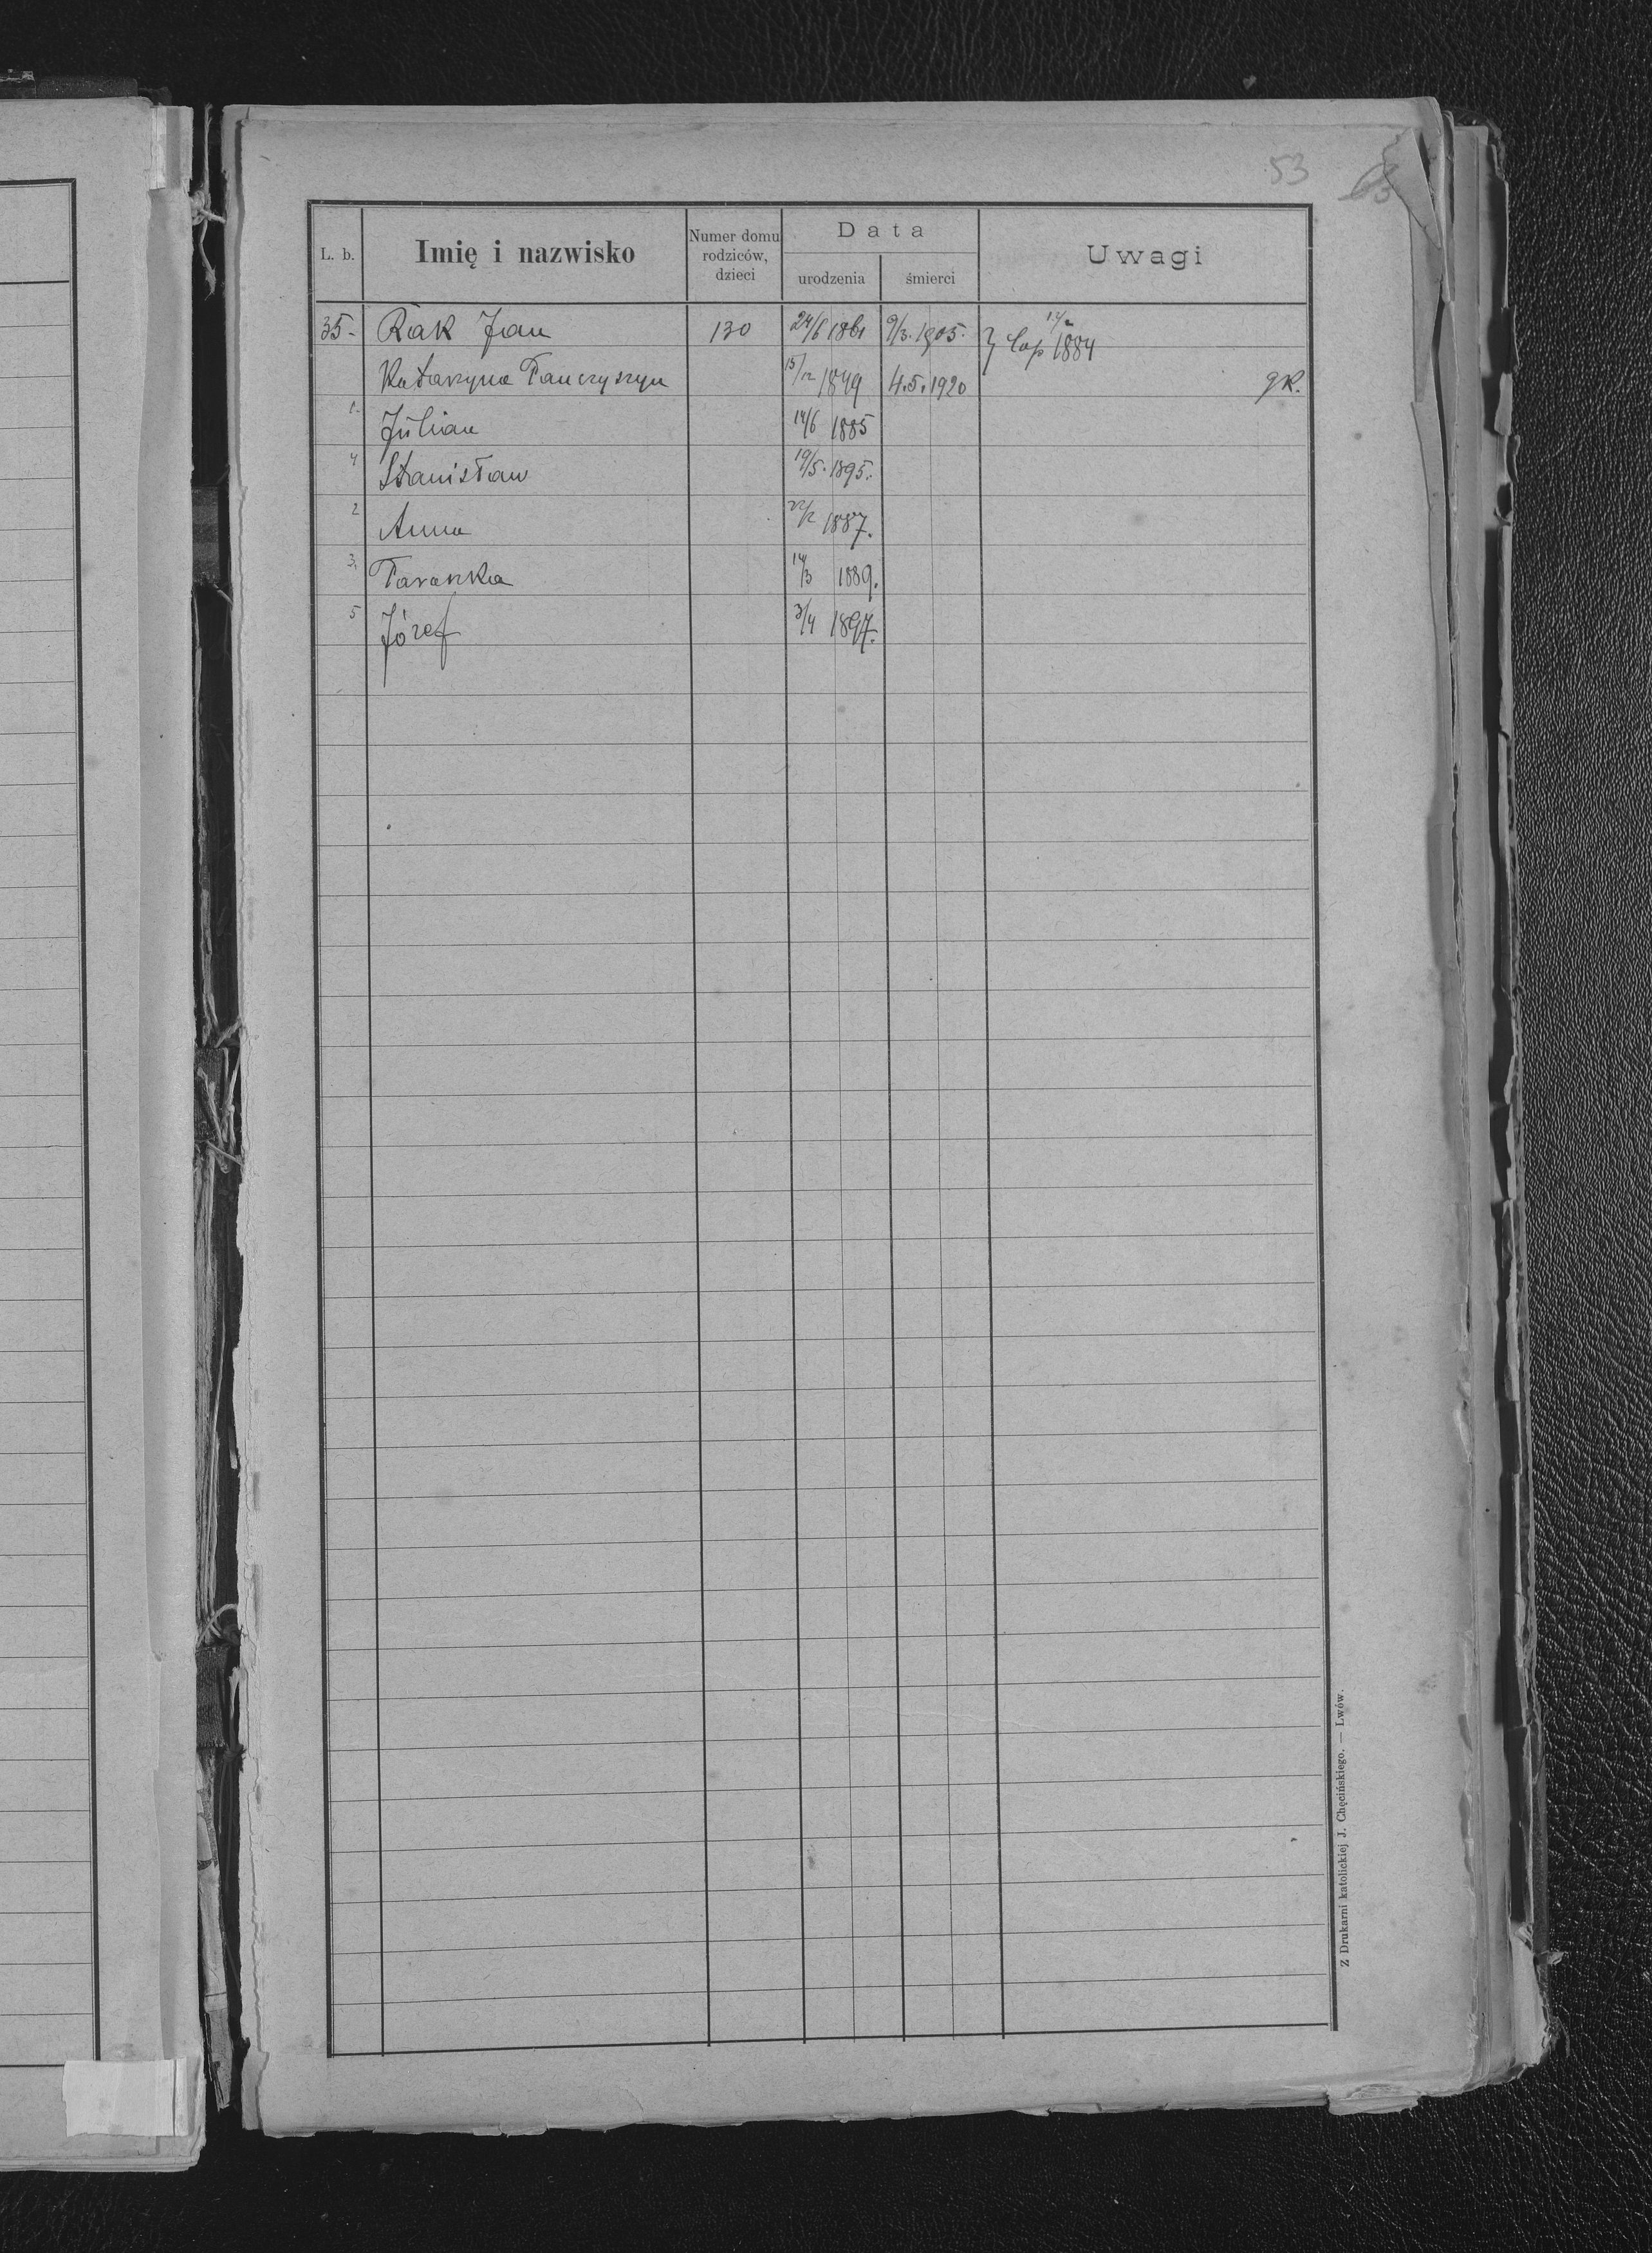 53
L. b. Imię i nazwisko Numer domu rodziców, dzieci Data urodzenia śmierci Uwagi
35. Rak Jan 130 24/6 1861 9/3. 1905. } Cop 1884
Katarzyna Panczyszyn 15/12 1849 4.5.1920 gk.
1. Julian 14/6 1885
4 Stanisław 19/5. 1895.
2 Anna 1887.
3. Paraska 14/3 1889.
5 Józef 3/4 1897.
Z Drukarni katolickiej J. Chęcińskiego. — Lwów.